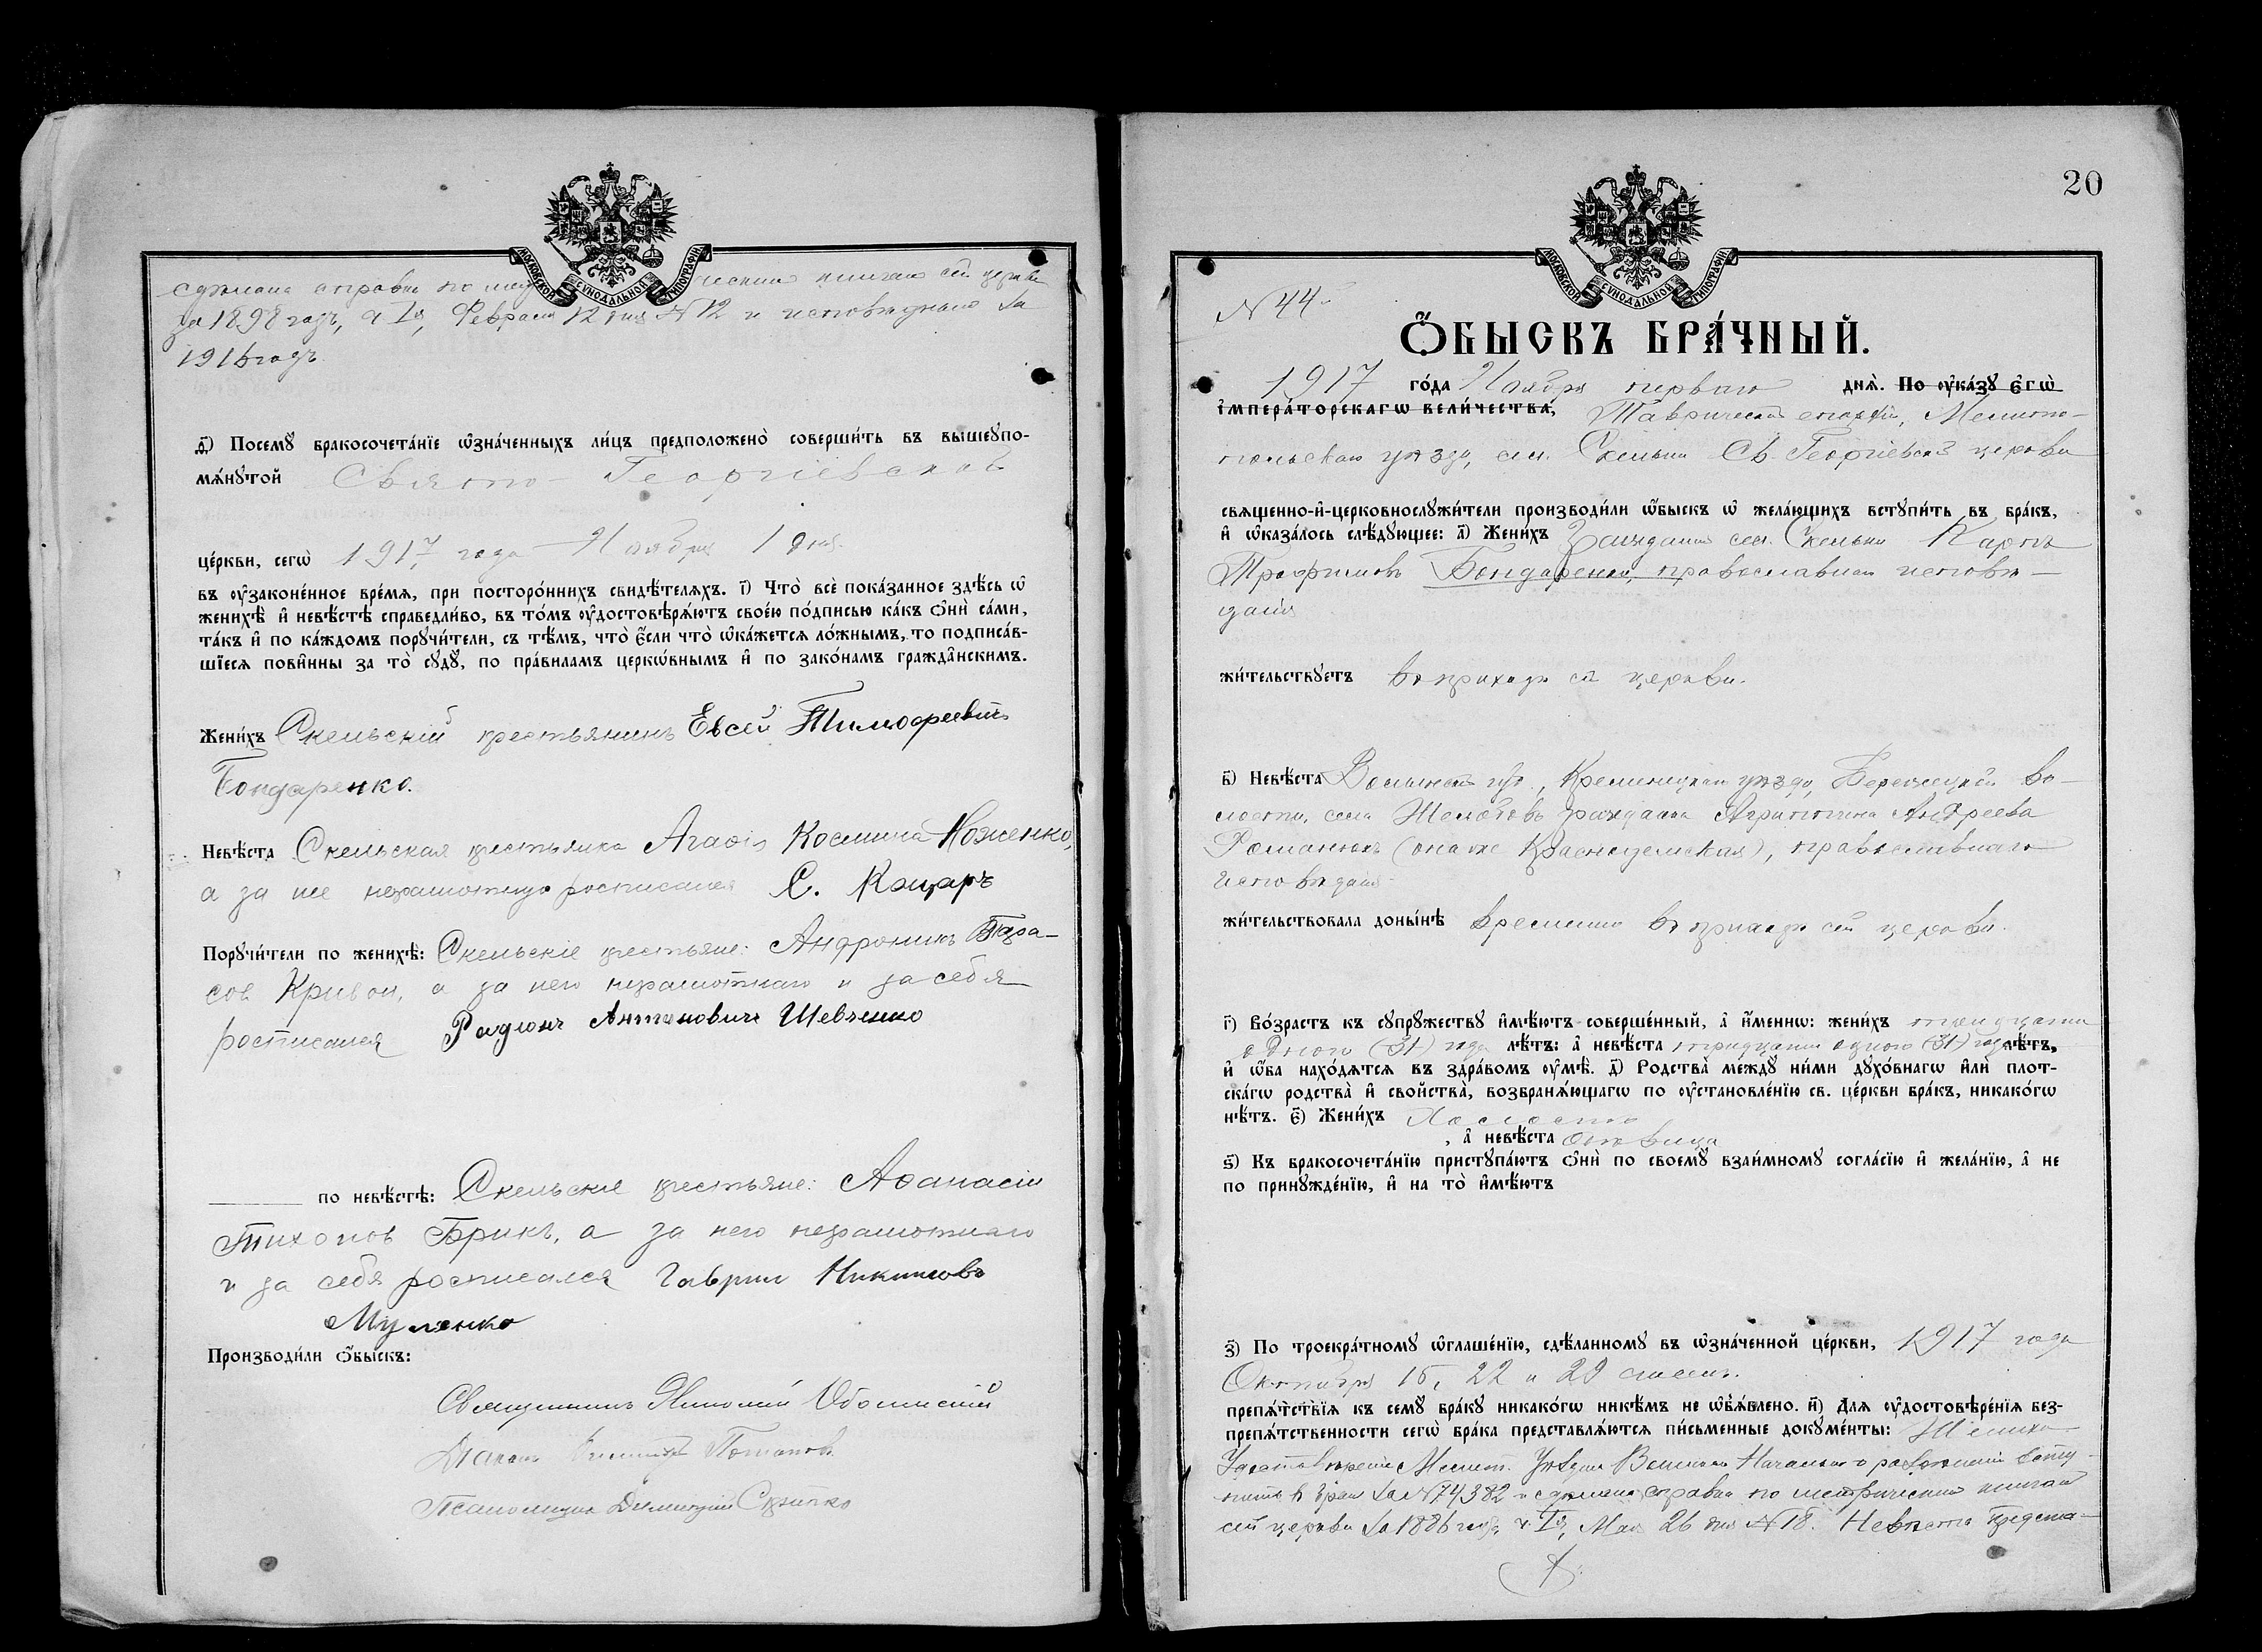 МОСКОВСКОЙ СѴНОДАЛЬНОЙ ТИПОГРАФІИ
сдѣлана справка по книгамъ сей церкви
за 1898 годъ, ч. Iя, Февраля 12 дня № 12 и исповѣднымъ за
1916 годъ.
д҃) Посемꙋ̀ бракосочета́нїе ѡ҆зна́ченныхъ ли́цъ предположено̀ соверши́ть въ вышеꙋпо-
мѧ́нꙋтой Свято-Георгіевской
це́ркви, сегѡ̀ 1917 года Ноября 1 дня.
въ ᲂу҆законе́нное вре́мѧ, при посторо́ннихъ свидѣ́телѧхъ. і҃) Что̀ всѐ пока́занное здѣ́сь ѡ҆
женихѣ̀ и҆ невѣ́стѣ справедли́во, въ то́мъ ᲂу҆достовѣрѧ́ютъ свое́ю по́дписью ка́къ ѻ҆нѝ са́ми,
та́къ и҆ по ка́ждомъ порꙋчи́тели, съ тѣ́мъ, что̀ є҆́сли что̀ ѡ҆ка́жетсѧ ло́жнымъ, то подписа́в-
шїесѧ пови́нны за то̀ сꙋдꙋ̀, по пра́виламъ церкѡ́внымъ и҆ по зако́намъ гражда́нскимъ.
Жени́хъ Скельскій крестьянинъ Евсей Тимофеевичъ
Бондаренко.
Невѣ́ста Скельская крестьянка Агаѳія Космина Ноженко,
а за нее неграмотную росписался С. Коцарь
Порꙋчи́тели по женихѣ̀: Скельскіе крестьяне: Андроникъ Тара-
сов Кривой, а за него неграмотнаго и за себя
росписался Радионъ Антоновичъ Шевченко
по невѣ́стѣ: Скельскіе крестьяне: Аѳанасій
Тихонов Брикъ, а за него неграмотнаго
и за себя росписался Гаврил Никитовъ
Муленко
Производи́ли ѻ҆́быскъ:
Священникъ
Діаконъ Потапов
Псаломщикъ Димитрій Скрипко
20
МОСКОВСКОЙ СѴНОДАЛЬНОЙ ТИПОГРАФІИ
N 44.
Ѻ҆́БЫСКЪ БРА́ЧНЫЙ.
1917 го́да Ноября перваго днѧ̀. По ᲂу҆ка́зꙋ є҆гѡ̀
і҆мпера́торскагѡ вели́чества, Таврической епархіи, Мелито-
польскаго уѣзда, сел. Скельки Св. Георгіевской церкви
свѧще́нно-и҆-церковнослꙋжи́тели производи́ли ѡ҆́быскъ ѡ҆ жела́ющихъ встꙋпи́ть въ бра́къ,
и҆ ѡ҆каза́лось слѣ́дꙋющее: а҃) Жени́хъ Гражданин сел. Скельки Карпъ
Трофимовъ Бондаренко, православнаго исповѣ-
данія
жи́тельствꙋетъ въ приходѣ сей церкви.
в҃) Невѣ́ста Волынской губ., Кременецкаго уѣзда, Бережецкой во-
лости, села Жолобовъ гражданка Агриппина Андреева
Романюкъ (она же Красносельская), православнаго
исповѣданія
жи́тельствовала доны́нѣ временно въ приходѣ сей церкви.
г҃) Во́зрастъ къ сꙋпрꙋ́жествꙋ и҆мѣ́ютъ соверше́нный, а҆ и҆́меннѡ: жени́хъ тридцати
одного (31) года лѣ́тъ: а҆ невѣ́ста тридцати одного (31) года лѣ́тъ,
и҆ ѡ҆́ба нахо́дѧтсѧ въ здра́вомъ ᲂу҆мѣ̀. д҃) Родства̀ междꙋ̀ ни́ми дꙋхо́внагѡ и҆лѝ плот-
ска́гѡ родства̀ и҆ свойства̀, возбранѧ́ющагѡ по ᲂу҆становле́нїю св. це́ркви бра́къ, никако́гѡ
нѣ́тъ. є҃) Жени́хъ Холостъ
, а҆ невѣ́ста дѣвица
ѕ҃) Къ бракосочета́нїю пристꙋпа́ютъ ѻ҆нѝ по своемꙋ̀ взаи́мномꙋ согла́сїю и҆ жела́нїю, а҆ не
по принꙋжде́нїю, и҆ на то̀ и҆мѣ́ютъ
з҃) По троекра́тномꙋ ѡ҆глаше́нїю, сдѣ́ланномꙋ въ ѡ҆зна́ченной це́ркви, 1917 года
Октября 15, 22 и 29 числъ.
препѧ́тствїѧ къ семꙋ̀ бра́кꙋ никако́гѡ никѣ́мъ не ѡ҆б̾ѧ́влено. и҃) Для ᲂу҆достовѣре́нїѧ без-
препѧ́тственности сегѡ̀ бра́ка представлѧ́ютсѧ пи́сьменные докꙋме́нты: Жениха
Удостовѣреніе Мелит. Уѣздн. Воинск. Начальн. о разрѣшеніи всту-
пить в бракъ за № 74382 и сдѣлана справка по метрическимъ книгамъ
сей церкви за 1886 годъ, ч. Iя, Мая 26 дня № 18. Невѣста предста-